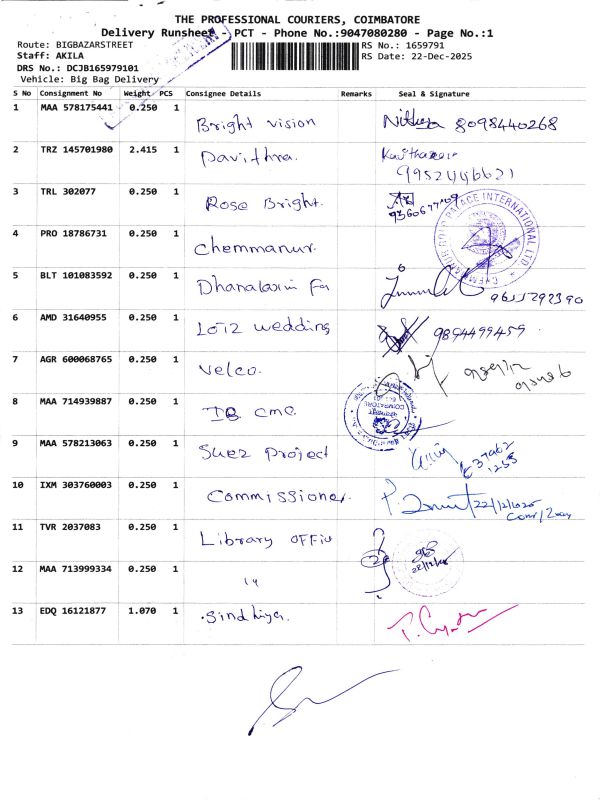 THE PROFESSIONAL COURIERS, COIMBATORE
Delivery Runsheet - PCT - Phone No.:9047080280 - Page No.:1
Route: BIGBAZARSTREET RS No.: 1659791
Staff: AKILA RS Date: 22-Dec-2025
DRS No.: DCJB165979101
Vehicle: Big Bag Delivery
S No Consignment No Weight PCS Consignee Details Remarks Seal & Signature
1 MAA 578175441 0.250 1 Bright vision 8098440268
2 TRZ 145701980 2.415 1 Pavithra. 9952446621
3 TRL 302077 0.250 1 Rose Bright. 9360677109
4 PRO 18786731 0.250 1 Chemmanur.
5 BLT 101083592 0.250 1 Dhanalaxmi 9655292390
6 AMD 31640955 0.250 1 wedding 9894499459
7 AGR 600068765 0.250 1 Velco.
8 MAA 714939887 0.250 1 CMC.
9 MAA 578213063 0.250 1 Suez project
10 IXM 303760003 0.250 1 Commissioner. 22/12/2025
11 TVR 2037083 0.250 1 Library
12 MAA 713999334 0.250 1 "
13 EDQ 16121877 1.070 1 Sindhiya.